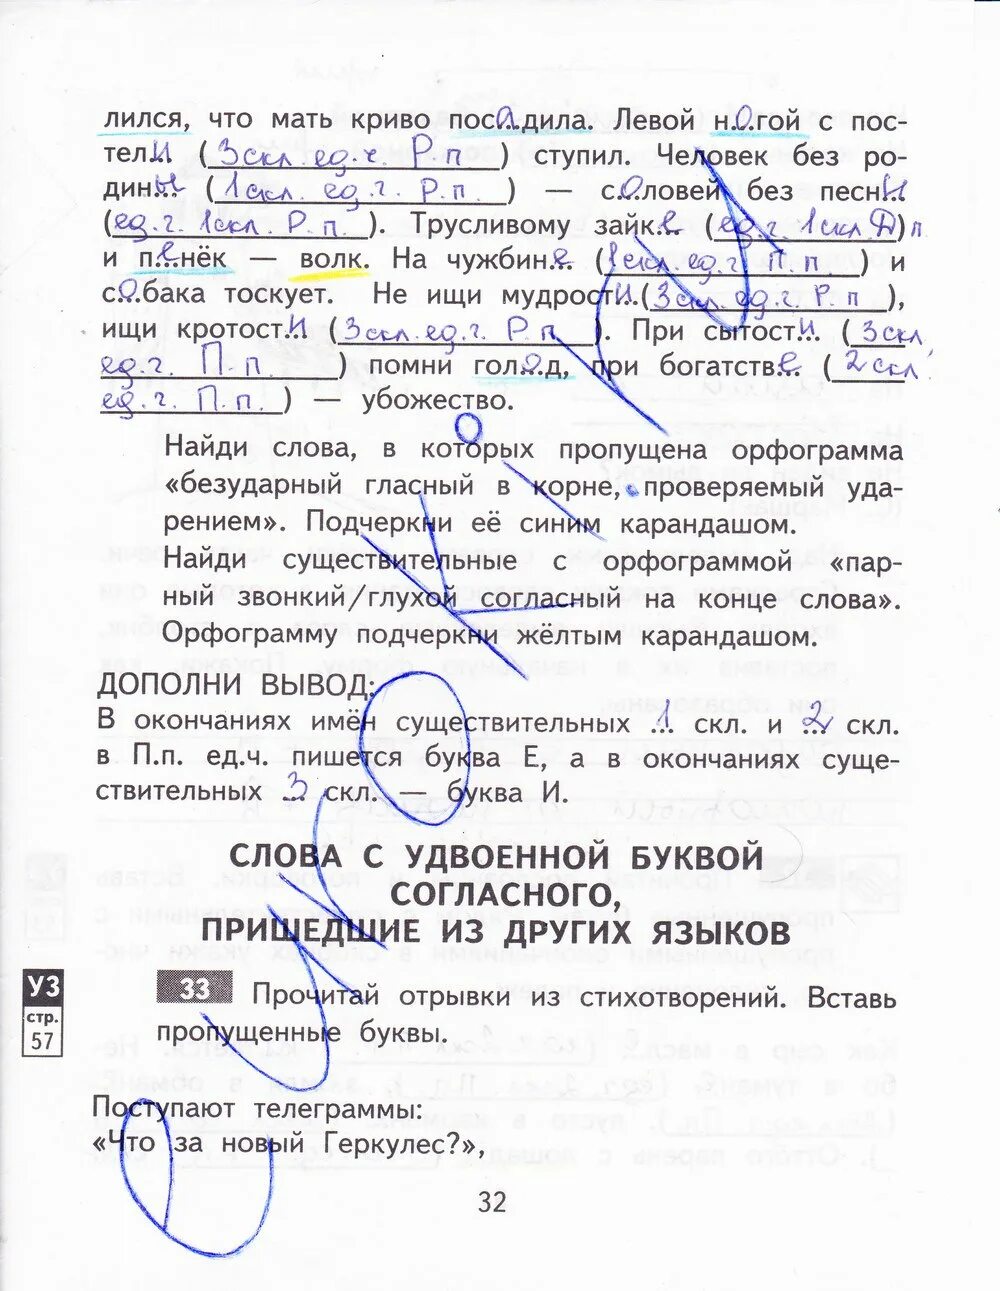 лился, что мать криво посадила. Левой ногой с пос-
тели (3скл. ед.ч. Р.п) ступил. Человек без ро-
дины (1скл. ед.ч. Р.п.) — соловей без песни
(ед.ч. 1скл. Р.п.). Трусливому зайке (ед.ч. 1скл Д)п
и пенёк — волк. На чужбине (1скл. ед.ч П.п) и
собака тоскует. Не ищи мудрости (3скл. ед.ч Р.п),
ищи кротости (3скл. ед.ч. Р.п.). При сытости (3скл,
ед.ч. П.п) помни голод, при богатстве (2скл.
ед.ч. П.п.) — убожество.
Найди слова, в которых пропущена орфограмма
«безударный гласный в корне, проверяемый уда-
рением». Подчеркни её синим карандашом.
Найди существительные с орфограммой «пар-
ный звонкий/глухой согласный на конце слова».
Орфограмму подчеркни жёлтым карандашом.
ДОПОЛНИ ВЫВОД:
В окончаниях имён существительных 1 скл. и 2 скл.
в П.п. ед.ч. пишется буква Е, а в окончаниях суще-
ствительных 3 скл. — буква И.
СЛОВА С УДВОЕННОЙ БУКВОЙ
СОГЛАСНОГО,
ПРИШЕДШИЕ ИЗ ДРУГИХ ЯЗЫКОВ
УЗ
стр.
57
33 Прочитай отрывки из стихотворений. Вставь
пропущенные буквы.
Поступают телеграммы:
«Что за новый Геркулес?»,
32